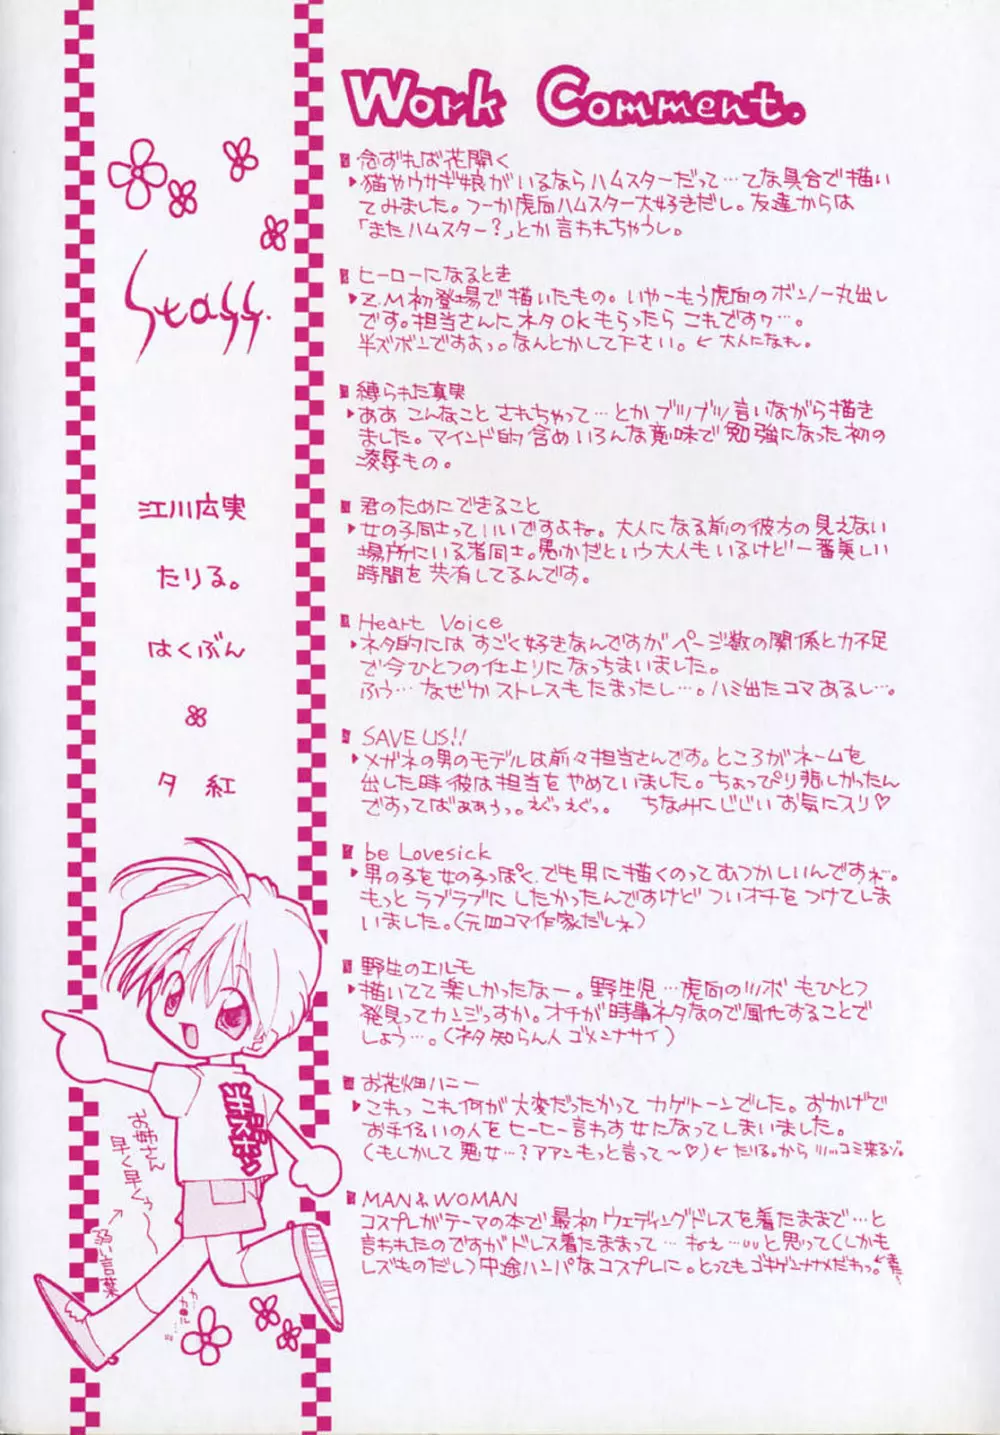 Work Comment.
念ずれば花開く
猫やウサギ娘がいるならハムスターだって…てな具合で描い
てみました。つーか虎向ハムスター大好きだし。友達からは
「またハムスター?」とか言われちゃうし。
ヒーローになるとき
Z.M初登場で描いたもの。いやーもう虎向のボンノー丸出し
です。担当さんにネタOKもらったらこれですヮ…。
半ズボンですよぉっ。なんとかして下さい。←大人になれ。
縛られた真実
ああこんなことされちゃって…とかブツブツ言いながら描き
ました。マインド的含めいろんな意味で勉強になった初の
凌辱もの。
君のためにできること
女の子同士っていいですよね。大人になる前の彼方の見えない
場所にいる者同士。愚かだという大人もいるけど一番美しい
時間を共有してるんです。
Heart Voice
ネタ的にはすごく好きなんですがページ数の関係と力不足
で今ひとつの仕上りになっちまいました。
ふぅ…なぜかストレスもたまったし…。ハミ出たコマあるし…。
SAVE US!!
メガネの男のモデルは前々担当さんです。ところがネームを
出した時彼は担当をやめていました。ちょっぴり悲しかったん
ですってばぁぁぅっ。えぐっえぐっ。 ちなみにじじいお気にスリ♡
be Lovesick
男の子を女の子っぽく、でも男に描くのってむつかしいんですネ。
もっとラブラブにしたかったんですけどついオチをつけてしま
いました。(元四コマ作家だしネ)
野生のエルモ
描いてて楽しかったなー。野生児…虎向のツボもひとつ
発見ってカンジっすか。オチが時事ネタなので風化することで
しょう…。(ネタ知らん人ゴメンナサイ)
お花畑ハニー
これっこれ何が大変だったかってカゲトーンでした。おかげで
お手伝いの人をヒーヒー言わす女になってしまいました。
(もしかして悪女…?アアンもっと言って〜♡)←たりる。からツッコミ来るゾ。
MAN & WOMAN
コスプレがテーマの本で最初ウェディングドレスを着たままで…と
言われたのですがドレス着たままって…ねぇ…と思って(しかも
レズものだし)中途ハンパなコスプレに。とってもゴキゲンナナメだわっ。
Staff.
江川広実
たりる。
はくぶん
夕紅
お姉さん
早く早くぅ〜
弱い言葉